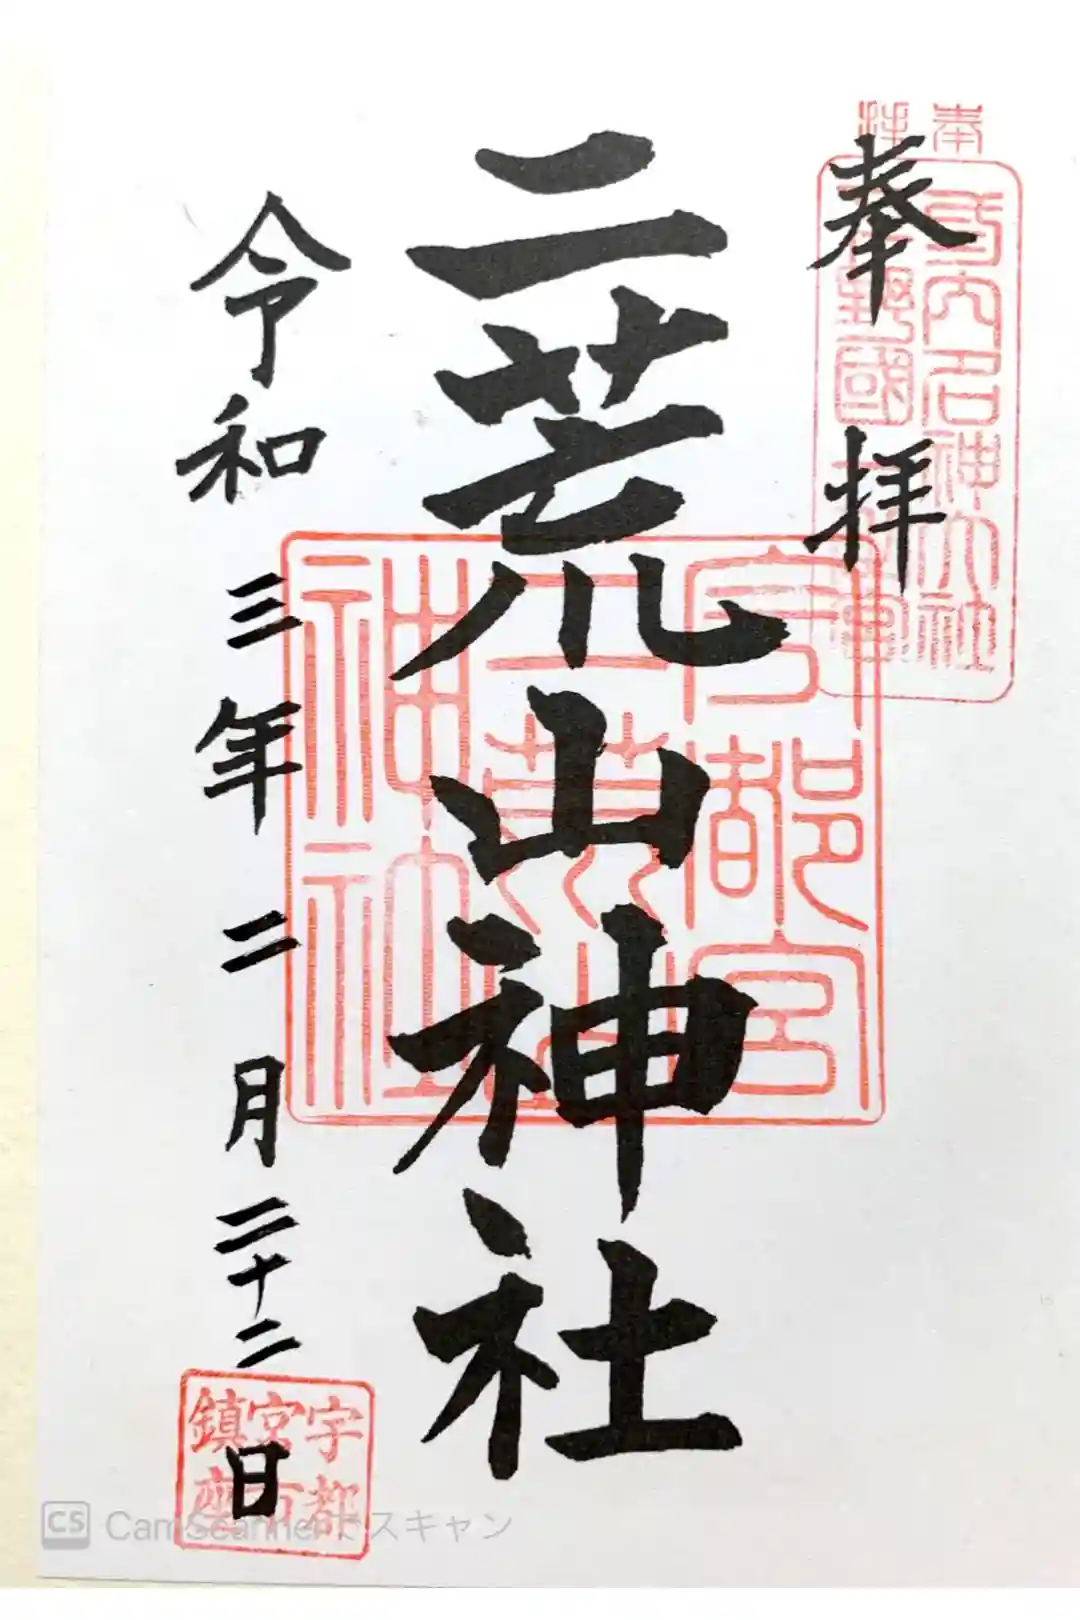 奉拝
二荒山神社
令和三年二月二十二日
宇都宮
二荒山
神社
宇都
宮市
鎮座
CS CamScannerでスキャン